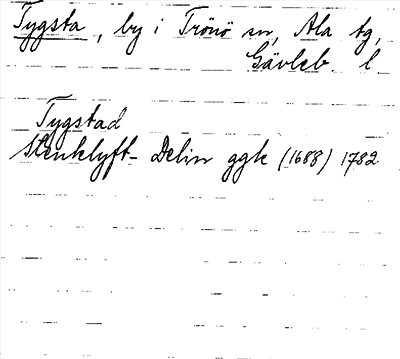 Tygsta, by i Trönö sn, Ala tg,
Gävleb. l.
Tygstad
Stenklyft- Delin ggk (1688) 1732